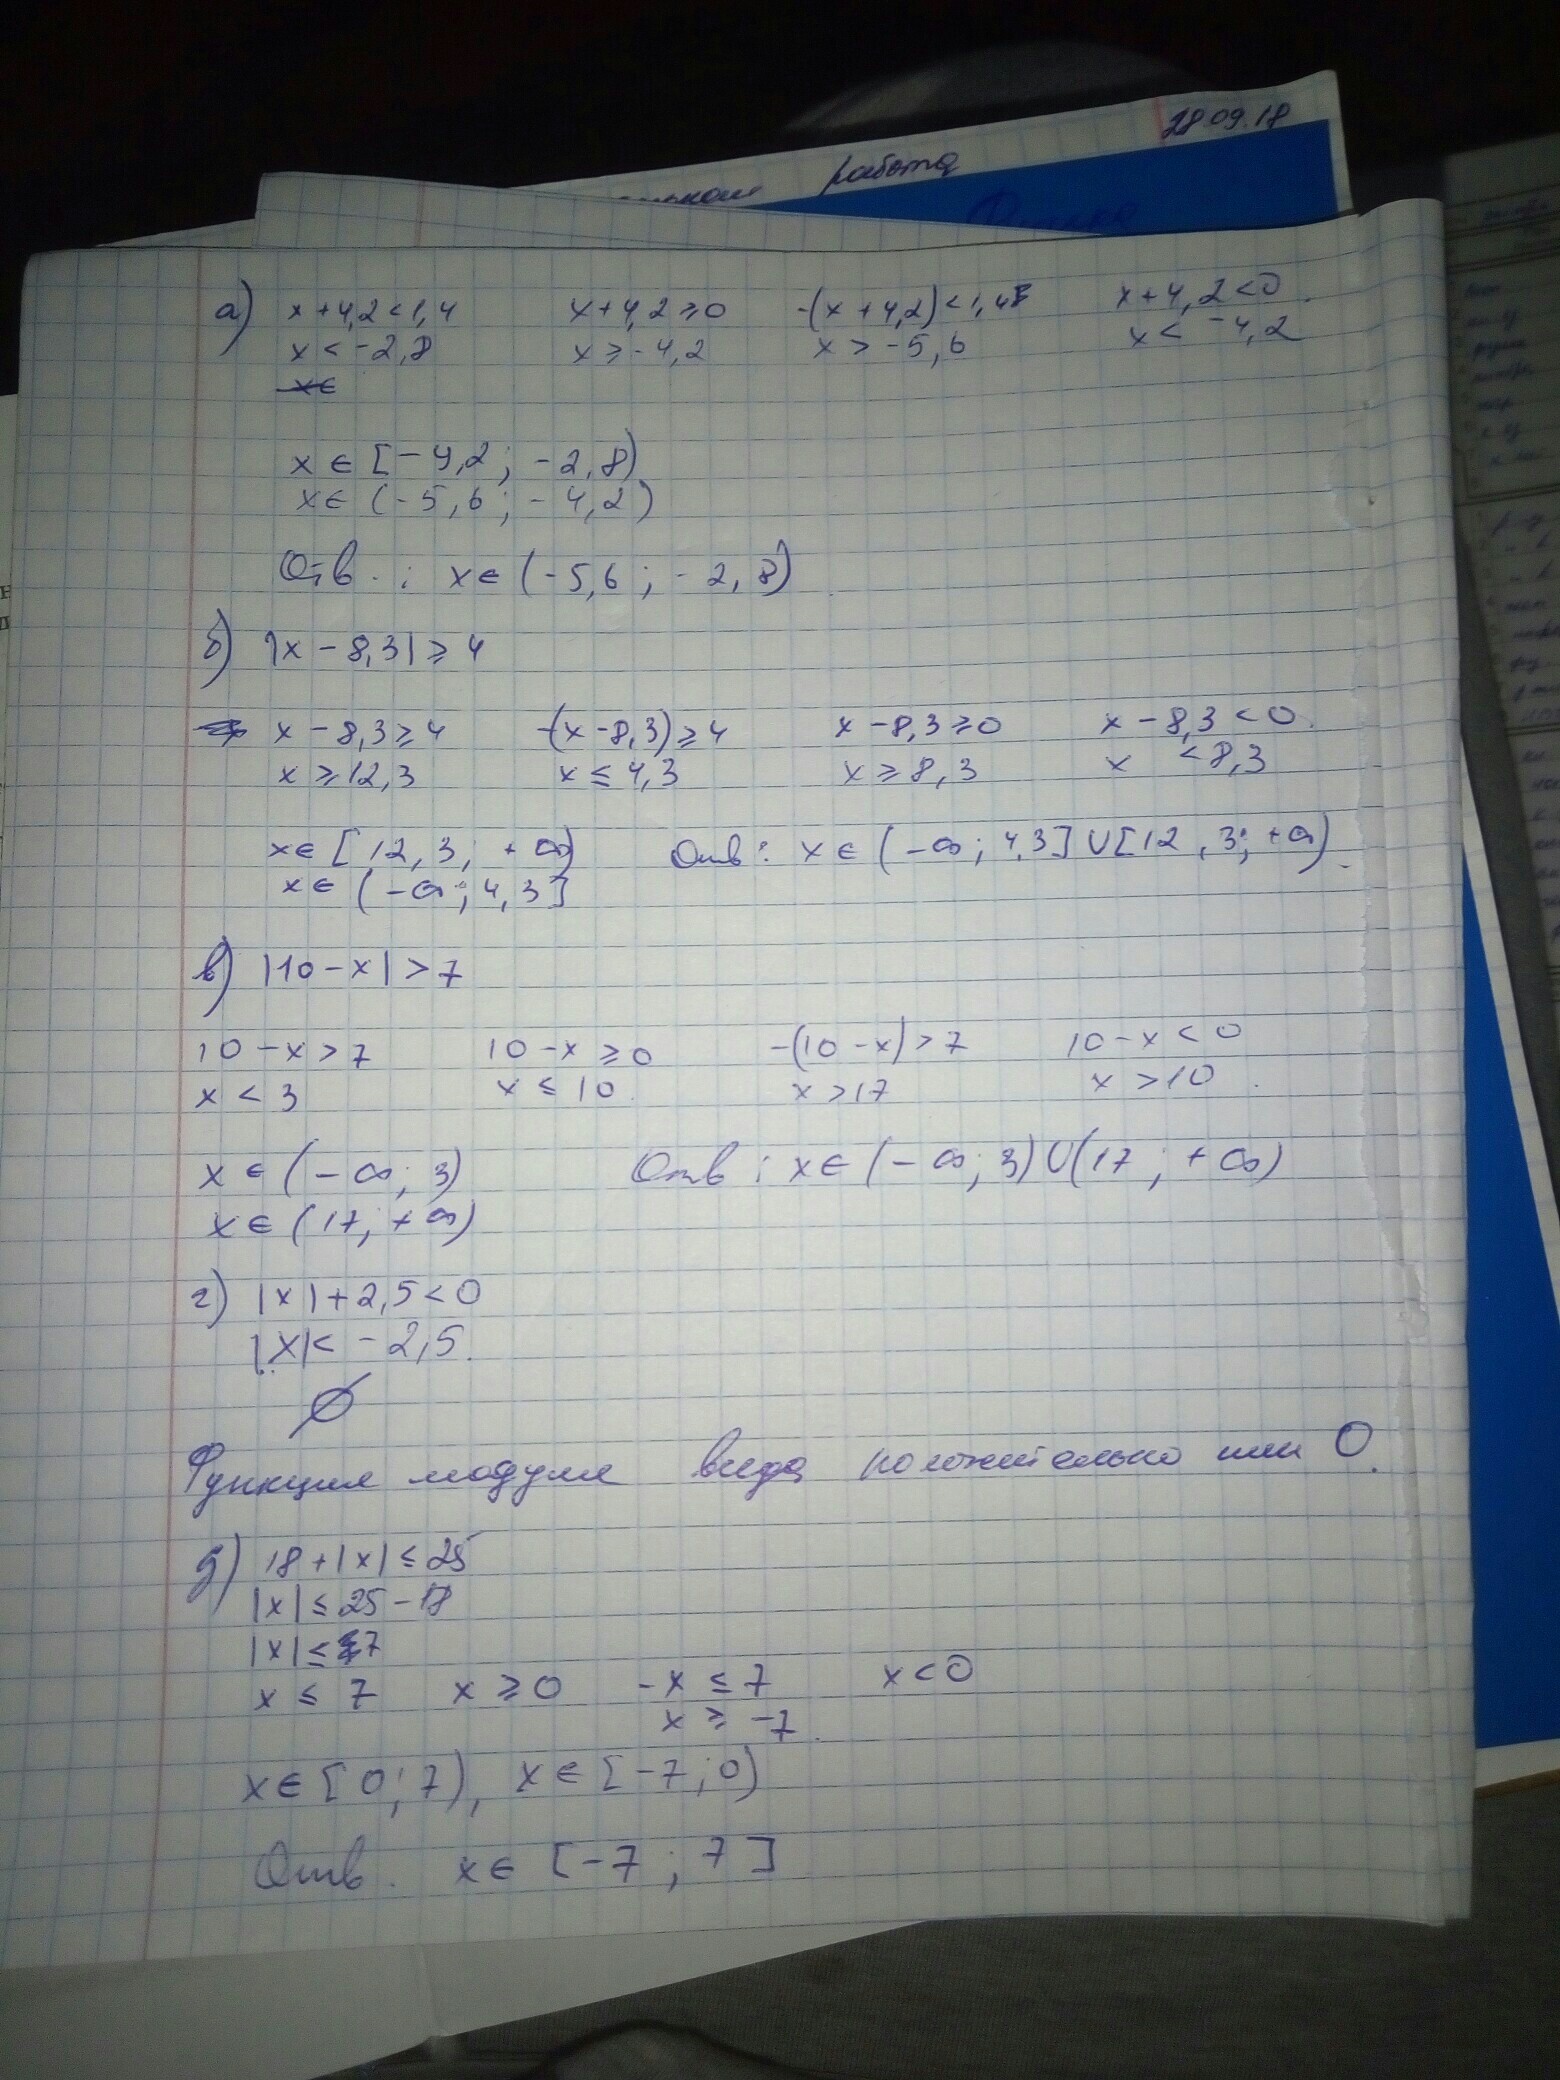 28.09.18
работа
а) x+4,2<1,4 x+4,2≥0 -(x+4,2)<1,4 x+4,2<0.
x<-2,8 x≥-4,2 x>-5,6 x<-4,2
x∈
x∈[-4,2; -2,8)
x∈(-5,6; -4,2)
Отв.: x∈(-5,6; -2,8)
б) |x-8,3|≥4
x-8,3≥4 -(x-8,3)≥4 x-8,3≥0 x-8,3<0.
x≥12,3 x≤4,3 x≥8,3 x <8,3
x∈[12,3; +∞) Отв: x∈(-∞; 4,3]∪[12,3; +∞).
x∈(-∞; 4,3]
в) |10-x|>7
10-x>7 10-x≥0 -(10-x)>7 10-x<0
x<3 x≤10. x>17 x>10.
x∈(-∞; 3) Отв: x∈(-∞; 3)∪(17; +∞)
x∈(17; +∞)
г) |x|+2,5<0
|x|<-2,5.
∅
Функция модуля всегда положительно или 0.
д) 18+|x|≤25
|x|≤25-18
|x|≤7
x≤7 x≥0 -x≤7 x<0
x≥-7.
x∈[0;7), x∈[-7;0)
Отв. x∈[-7; 7]